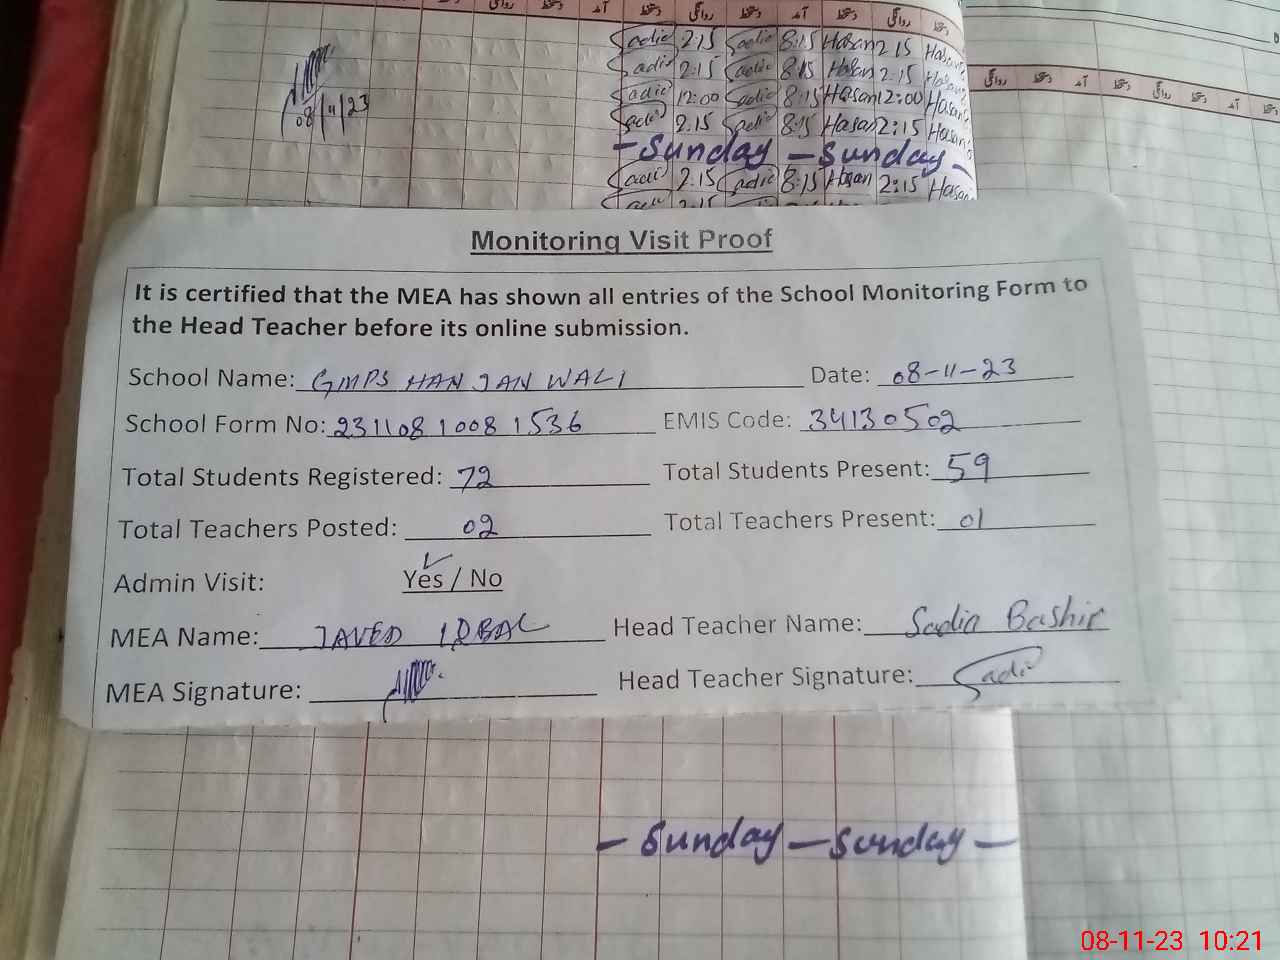 روانگی دستخط آمد دستخط روانگی دستخط آمد دستخط روانگی دستخط
Sadia 2:15 Sadia 8:15 Hasan 2:15 Hasan
Sadia 2:15 Sadia 8:15 Hasan 2:15 Hasan
Sadia 12:00 Sadia 8:15 Hasan 12:00 Hasan
Sadia 2:15 Sadia 8:15 Hasan 2:15 Hasan
08/11/23
- Sunday - Sunday -
Sadia 2:15 Sadia 8:15 Hasan 2:15 Hasan
روانگی دستخط آمد دستخط روانگی دستخط آمد دستخط
Monitoring Visit Proof
It is certified that the MEA has shown all entries of the School Monitoring Form to
the Head Teacher before its online submission.
School Name: GMPS HAN JAN WALI Date: 08-11-23
School Form No: 23110810081536 EMIS Code: 34130502
Total Students Registered: 72 Total Students Present: 59
Total Teachers Posted: 02 Total Teachers Present: 01
Admin Visit: Yes / No
MEA Name: JAVED IQBAL Head Teacher Name: Sadia Bashir
MEA Signature: Head Teacher Signature: Sadia
- Sunday - Sunday -
08-11-23 10:21